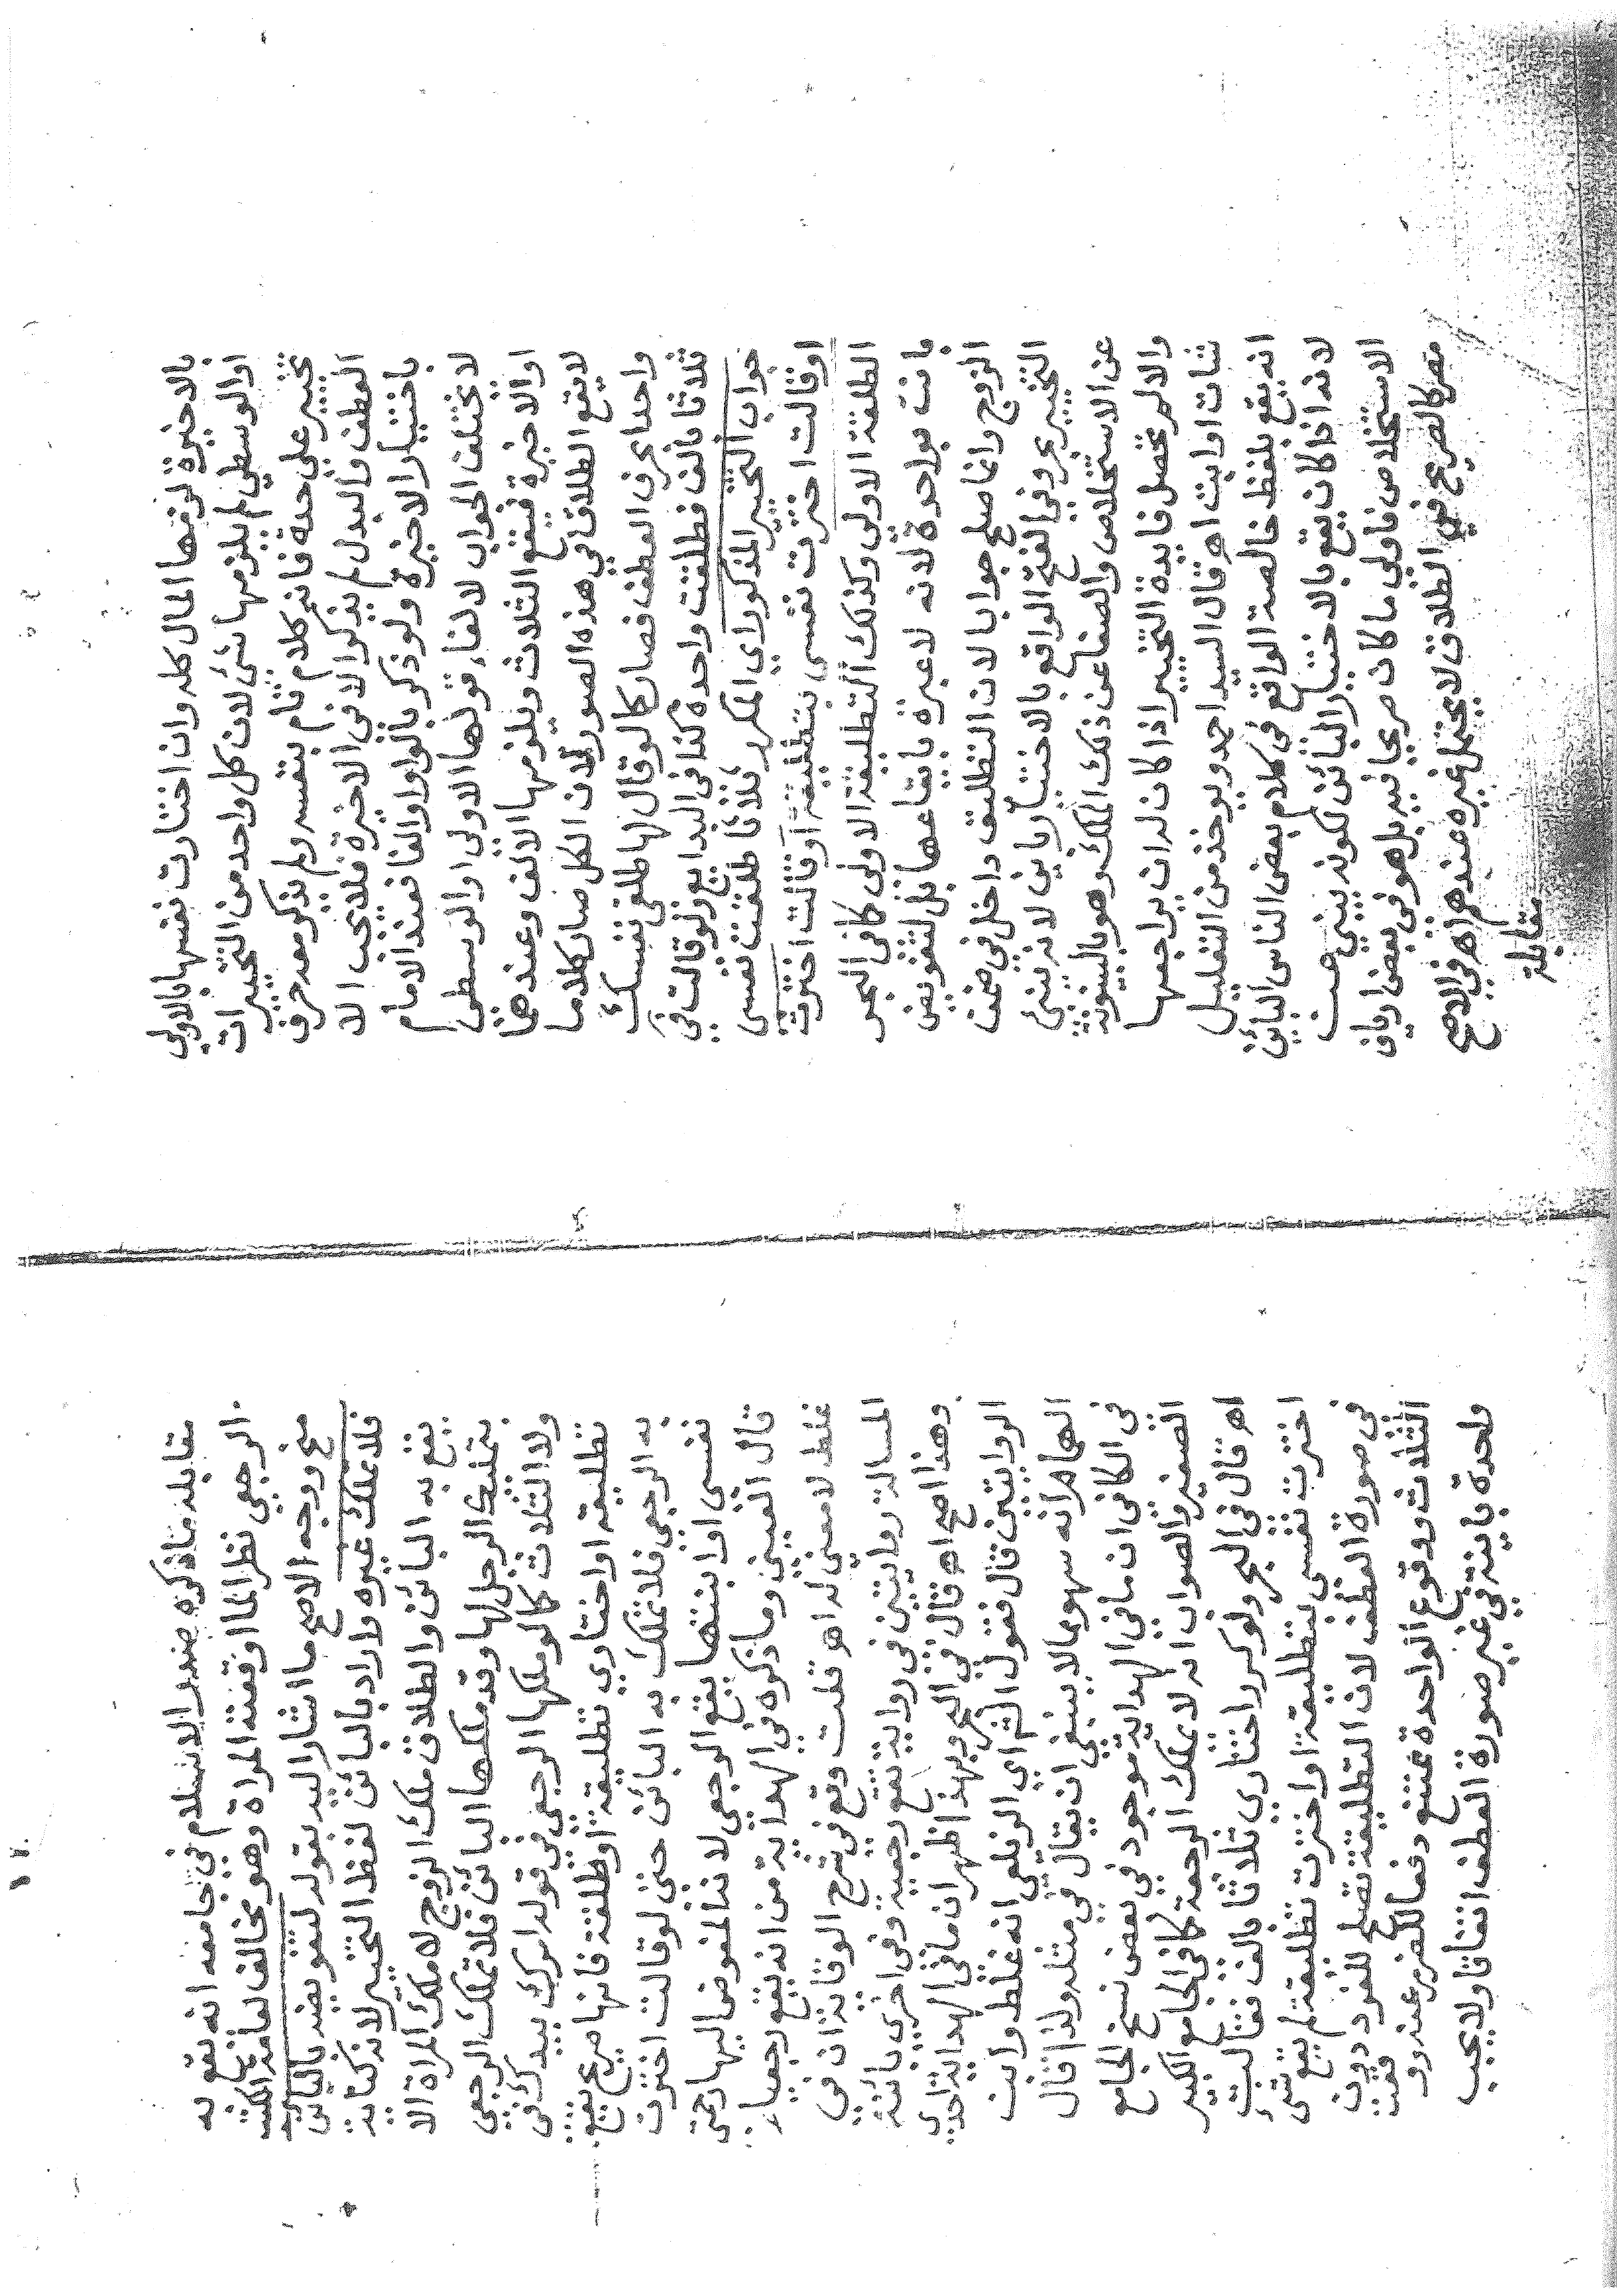 بالاخيرة لزمها المال كله وان اختارت نفسها بالاولى
اوالوسطي لم يلزمها شئ لان كل واحد من التخييرات
تخيير على حدة فانه كلام تام بنفسه ولم يذكر معه حرف
العطف والبدل لم يذكر الا في الاخيرة فلا يجب الا
باختيار الاخيرة ولو ذكر بالواو او الفا فعند الامام
لا يختلف الجواب لالغاء قولها الاولى او الوسطى
او الاخيرة فيقع الثلاث ويلزمها الالف وعندهما
لا يقع الطلاق في هذه الصور لان الكل صار كلاما
واحدا بحرف العطف فصار كما لو قال لها طلقي نفسك
ثلاثا بالف فطلقت واحده كذا في البدايع ولو قالت في
جواب التخيير المذكور اي المكرر ثلاثا طلقت نفسى
اوقالت اخترت نفسى بتطليقة اوقالت اخترت
الطلقة الاولى وكذلك التطليقة الاولى كما في البحر
بانت بواحدة لانه لا عبرة بايقاعها بل لتفويض
الزوج وانما صلح جوابا لان التطليق داخل في ضمن
التخيير بحر وفي الفتح الواقع بالاختيار باين لانه ينبئ
عن الاستخلاص والصفا عن ذلك الملك وهو بالبينونة
والا لم تحصل فايدة التخيير اذا كان له ان يراجعها
شات اوابت اه قال السيد احمد ويوخذ من التعليل
انه يقع بلفظ خالصة الواقع في كلام بعض الناس الباين
لانه اذا كان يقع بالاختيار البائن لكونه ينبي عن
الاستخلاص فاولى ما كان صريحا فيه بل هو في بعض ارياف
مصر كالصريح في الطلاق لا يحتمل غيره عندهم اه في الاصح
مقابلة
مقابله ما ذكره صدر الاسلام في جامعه انه يقع به
الرجعي نظرا لما اوقعته المراة وهو مخالف لعامة الكتب
منح ووجه الاصح ما اشار اليه بقوله لتفويضه بالبائن
فلا تملك غيره واراد بالبائن لفظ التخيير لانه كناية
يقع به البائن والطلاق ملك الزوج لا ملك المراة الا
بتمليك الرجل لها وقد ملكها البائن فلا تملك الرجعي
ولا الثلاث كما لو ملكها الرجعي في قوله امرك بيدك في
تطليقه او اختاري تطليقة اوطلقة فانها صريح يقع
به الرجعي فلا تملك به البائن حتى لو قالت اخترت
نفسى او ابنتها يقع الرجعي لا نه المفوض اليها رحمتى
قال العيني وما ذكره في الهداية من انه يقع رجعيا
غلط لا معنى له اه قلت وقع في شرح الوقاية ان في
المسالة روايتين في رواية تقع رجعية وفي اخرى بائنة
وهذا اصح اه قال في البحر وبهذا ظهر ان ما في الهداية احدى
الروايتين قال فقول الشراي الزيلعي انه غلط وابت
الهمام انه سهو مما لا ينبغي ان يقال في مثله ولذا قال
في الكافي ان ما في الهداية موجود في بعض نسخ الجامع
الصغير والصواب انه لا يملك الرجعة كما في الجامع الكبير
اه قال في البحر ولو كرر اختاري ثلاثا بالف فقالت
اخترت نفسى بتطليقة او اخترت تطليقة لم يقع شئ
في صورة العطف لان التطليقة تصلح للفرد دون
الثلاث ووقوع الواحدة ممتنع دفعا للضرر عنه ووقعت
واحدة باينة في غير صورة العطف اتفاقا ولا يجب